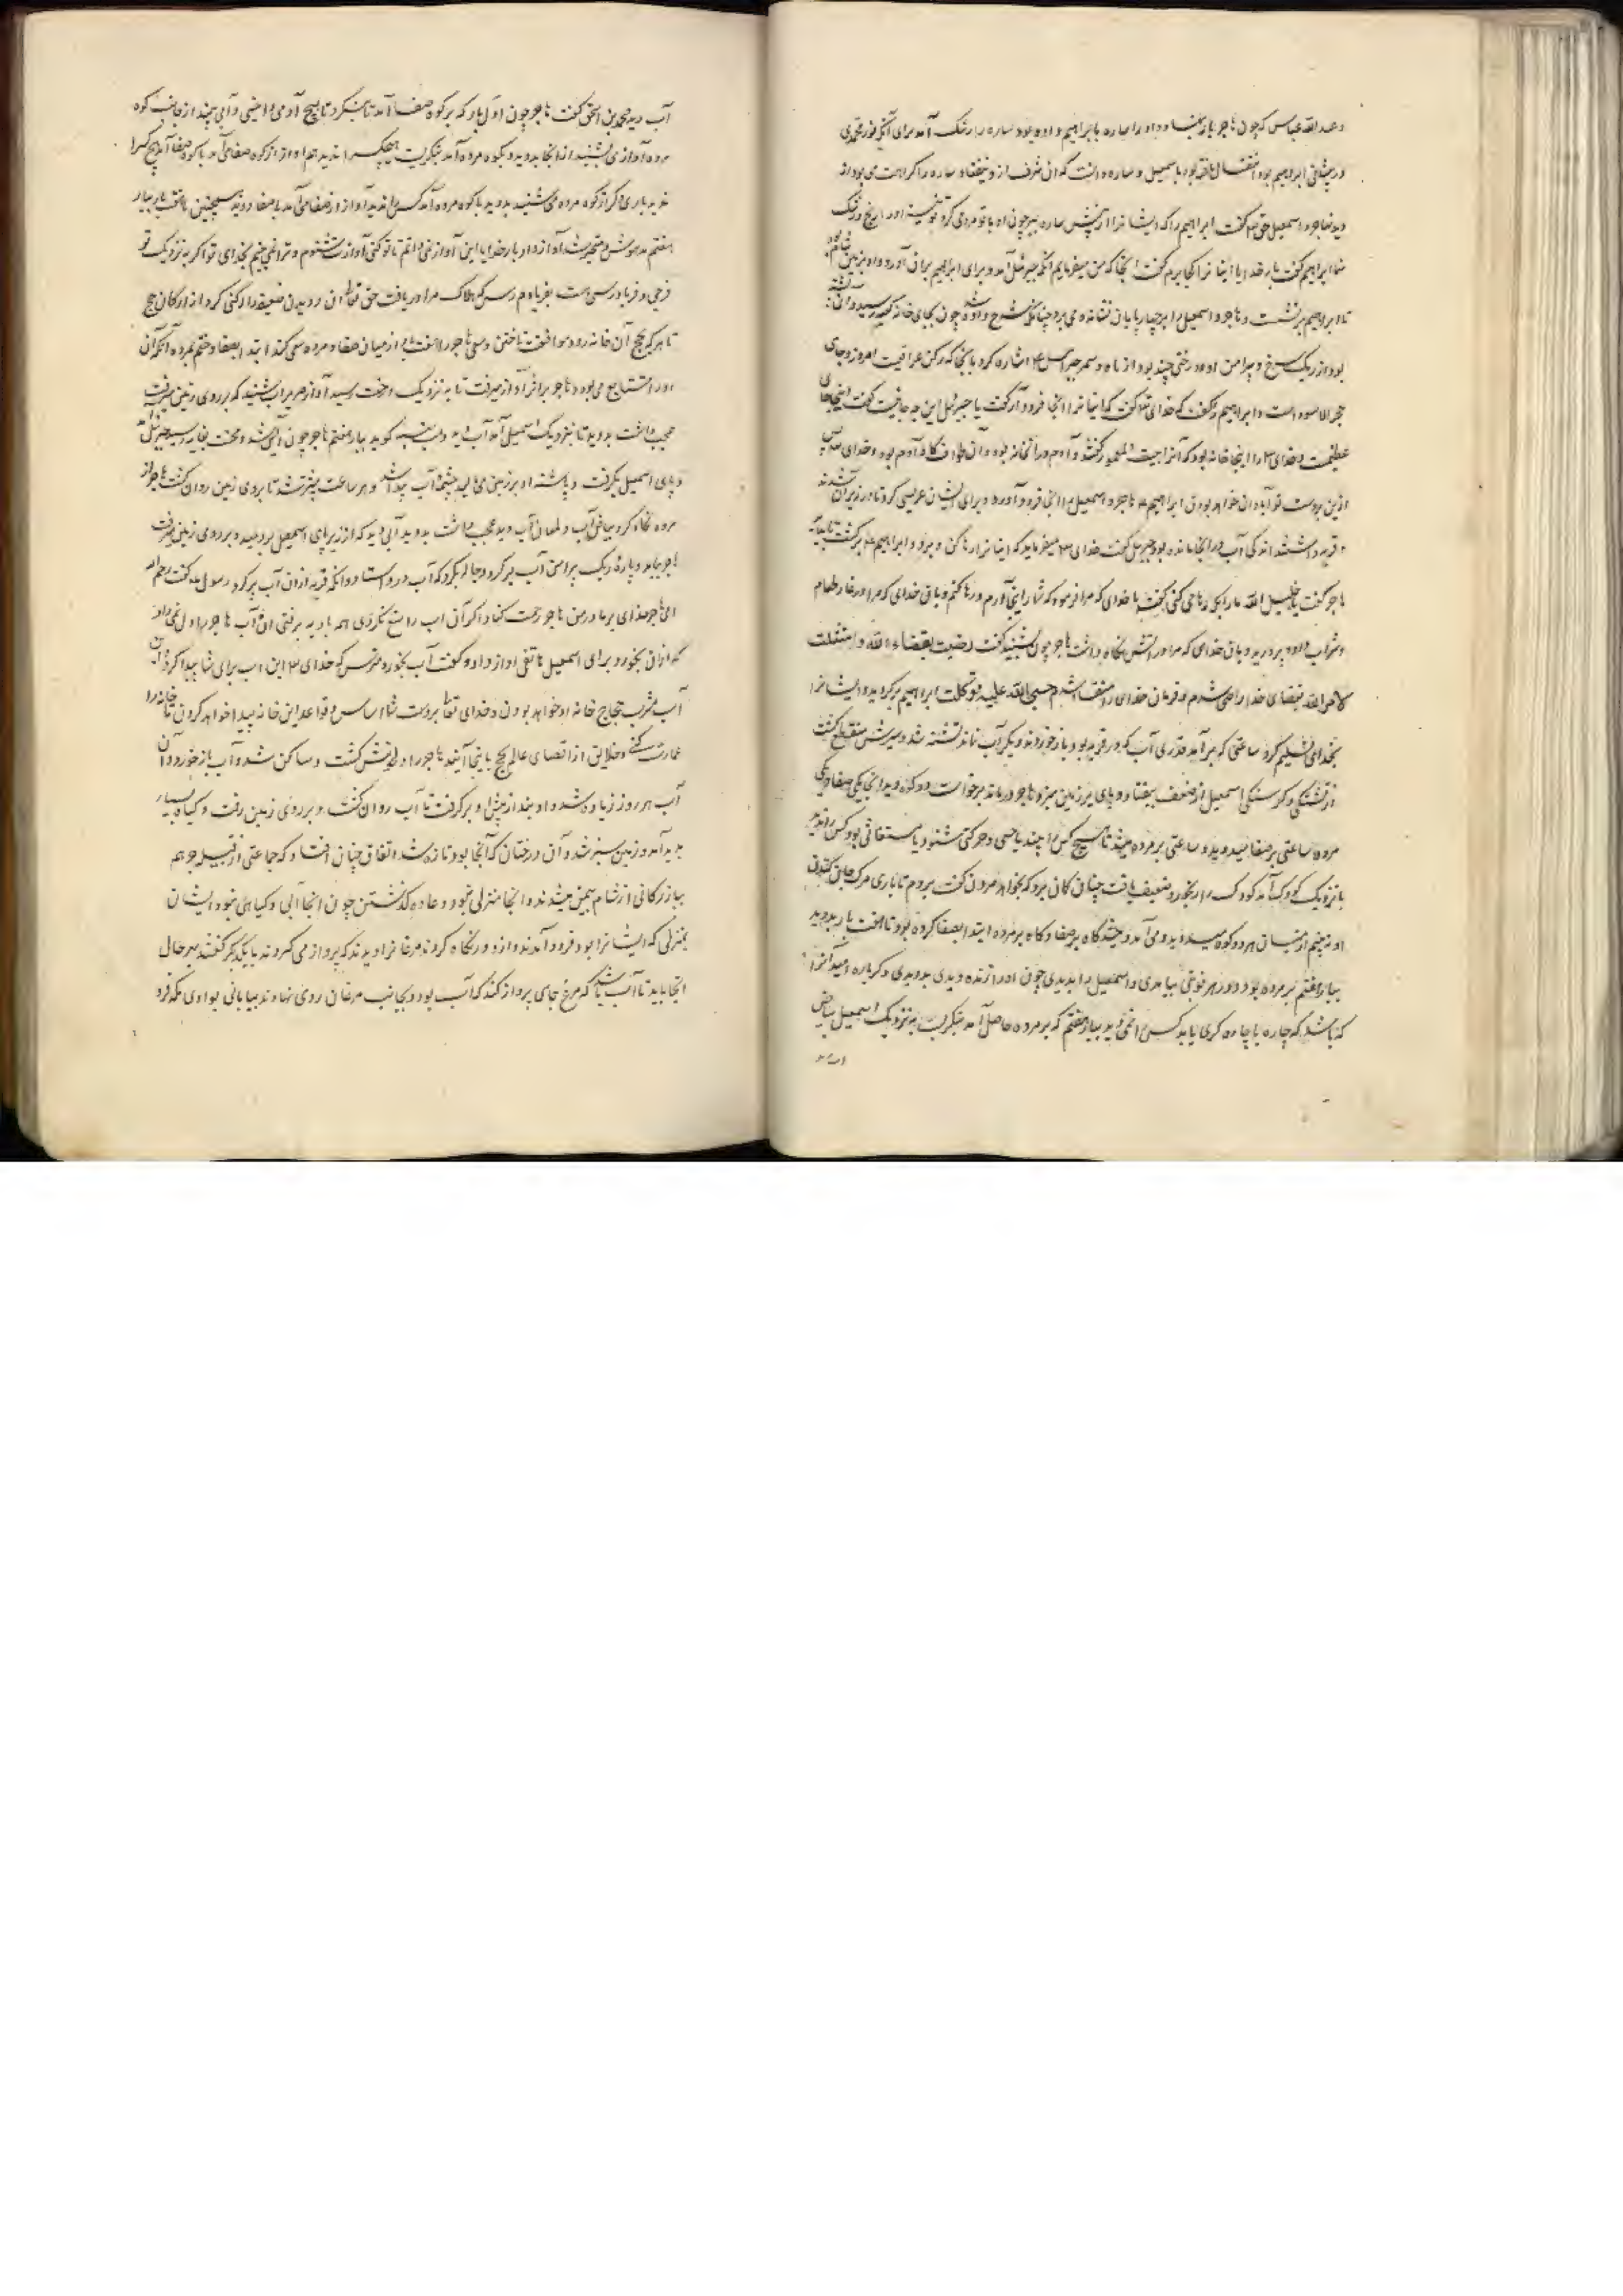 و عبدالله عباس که چون هاجر باز او را ساره بابراهیم داده بود ساره را رشک آمد برای آنکه نور محمدی
در پیشانی ابراهیم بود باسمعیل و ساره دانست که آن شرف از و ساره را کراهت می بود از
دید هاجر و اسمعیل حق تعالی گفت ابراهیم را که ایشانرا از پیش ساره ببر چون او با تو مردمی کرد تو نیز او را رشک
منما ابراهیم گفت بار خدایا اینانرا کجا برم گفت آنجا که من میفرمایم آنگه جبرئیل آمد و برای ابراهیم براق آورد و او بزمین شام
تا ابراهیم برنشست و هاجر و اسمعیل را بر چهارپایان نشانده می برد چنانکه شرح داده شد چون بجای خانه کعبه رسید و آن
بود از ریگ سرخ و پیرامن او درختی چند بود از جبرئیل اشاره کرد بآنجا که رکن عراقیست امروز و جای
حجر الاسود است و ابراهیم را گفت که خدای تعالی گفت که اینانرا اینجا فرود آر گفت یا جبرئیل این چه جایست گفت اینجا جای
عظیمست و خدای را اینجا خانه بود که آنرا بیت المعمور گفتند و آدم در آنخانه بود و آن طواف گاه آدم بود و خدای تعالی
ازین بدست تو آبادان خواهد بودن ابراهیم هاجر و اسمعیل را آنجا فرود آورد و برای ایشان عریشی کرد تا در زیر آن شدند
و قربه داشتند اندکی آب در آنجا مانده بود جبرئیل گفت خدای میفرماید که اینانرا رها کن و برو و ابراهیم برگشت تا بیاید
هاجر گفت یا خلیل الله مارا بکه رها می کنی گفت با خدای که مرا فرمود که شما را اینجا آورم و رها کنم و بآن خدای که مرا در غار طعام
و شراب داد و پرورید و بآن خدای که مرا در آتش نگاه داشت هاجر چون بشنید گفت رضیت بقضاء الله و امتثلت
لامر الله بقضای خدا راضی شدم و فرمان خدای را منقاد شدم حسبی الله علیه توکلت ابراهیم برگردید و ایشانرا
بخدای تسلیم کرد ساعتی که برآمد قدری آب که در قربه بود باز خوردند دیگر آب نماند تشنه شد و شیرش منقطع گشت
از تشنگی و گرسنگی اسمعیل از ضعف بیفتاد و پای بر زمین میزد هاجر درماند برخاست دو کوه دید آنجا یکی صفا و یکی
مروه ساعتی بر صفا میدوید و ساعتی بر مروه میشد تا هیچ کس را بیند یا حسی و حرکتی شنود یا مستغاثی بود کس را ندید
با نزدیک کودک آمد کودک را رنجور و ضعیف یافت چنان گمان برد که بخواهد مردن گفت بروم تا باری مرگ
او نبینم از میان هر دو کوه میدوید و می آمد و میشد گاه بر صفا و گاه بر مروه ابتدا بصفا کرده بود تا هفت بار بدوید
بار هفتم بر مروه بود و در هر نوبتی بیامدی و اسمعیل را بدیدی چون او را زنده دیدی بدویدی دگرباره امید آنرا
که باشد که چاره یا چاره گری یابد کس را نمی دید بار هفتم که بر مروه حاصل آمد بنگریست بنزدیک اسمعیل بیاض
آب دید محمد بن اسحق گفت هاجر چون اول بار که بر کوه صفا آمد تا بنگرد تا هیچ آدمی یا انیسی و آبی بیند از جانب کوه
مروه آوازی بشنید از آنجا بدوید و بکوه مروه آمد بنگریست هیچکس را ندید هم آواز از کوه صفا می آمد با کوه صفا آمد هیچ کس را
ندید باری دگر از کوه مروه می شنید بدوید با کوه مروه آمد کس را ندید آواز از صفا می آمد با صفا دوید همچنین تا هفت بار بار
هفتم مدهوش و متحیر شد آواز داد بار خدایا این آواز نمی دانم تا تو کنی آواز می شنوم و ترا نمی بینم بخدای تو اگر بنزدیک تو
فرجی و فریادرسی هست بفریادم رس که هلاک مرا دریافت حق تعالی آن دویدن ضعیفه را رکنی کرد از ارکان حج
تا هر که حج آن خانه رود موافقت تاختن و سعی هاجر را هفت بار از میان صفا و مروه سعی کند ابتدا بصفا و ختم بمروه آنگه آن
آواز را استماع می بود و هاجر بر اثر آواز میرفت تا بنزدیک درخت رسید آواز صریر آب شنید که بر روی زمین میرفت
عجب داشت بدوید تا بنزدیک اسمعیل آمد آب دید و وهب منبه گوید بار هفتم هاجر چون آیس شد و محنت بغایت رسید جبرئیل
و پای اسمعیل بگرفت و پاشنه او بر زمین می مالید چشمه آب پیدا شد و هر ساعت بیشتر شد تا بروی زمین روان گشت هاجر از
مروه نگاه کرد بیاض آب و لمعان آب دید عجب داشت بدوید آبی دید که از زیر پای اسمعیل بردمید و بر روی زمین میرفت
هاجر بیامد و پاره ریگ پیرامن آب بر کرد و چالی بکرد که آب در و استاد و آنگه قربه ازان آب پر کرد رسول گفت رحم الله
امی هاجر خدای بر مادر من هاجر رحمت کناد اگر آن آب را منع نکردی همه بادیه برفتی آن آب هاجر را دل نمی داد
که ازان بخورد برای اسمعیل هاتفی آواز داد و گفت آب بخور و مترس که خدای این آب برای شما پیدا کرد و این
آب مشرب حجاج خانه او خواهد بودن و خدای تعالی بر دست شما اساس و قواعد این خانه پیدا خواهد کردن تا خانه را
عمارت کنند و خلایق از اقصای عالم بحج باینجا آیند هاجر را دل خوش گشت و ساکن شد و آب باز خورد و آن
آب هر روز زیاده شد و او بند از پیش او بر گرفت تا آب روان گشت و بر روی زمین رفت و گیاه بسیار
پدید آمد و زمین سبز شد و آن درختان که آنجا بود تازه شد اتفاق چنان افتاد که جماعتی از قبیله جرهم
ببازرگانی از شام بیمن میشدند و آنجا منزلی نبود و عاده گذشتن چون آنجا آبی و گیاهی نبود ایشان
بمنزلی که ایشانرا بود فرود آمدند و از دور نگاه کردند مرغانرا دیدند که پرواز می کردند با یکدیگر گفتند بهر حال
آنجا باید تا آب باشد که مرغ جای پرواز کند که آب بود و بجانب مرغان روی نهادند بیابانی بوادی مکه فرو